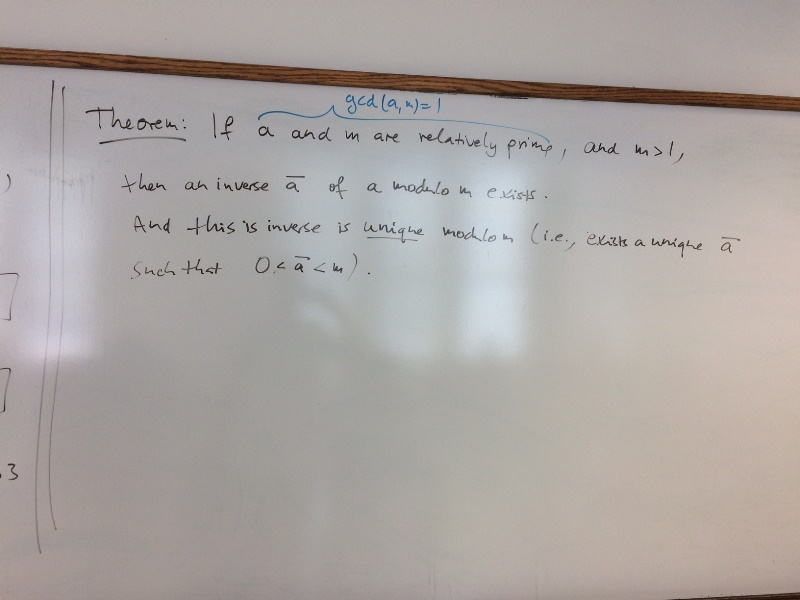 gcd(a,m)=1
Theorem: If a and m are relatively prime, and m>1,
then an inverse a̅ of a modulo m exists.
And this is inverse is unique modulo m (i.e., exists a unique a̅
such that 0 < a̅ < m).
)
3